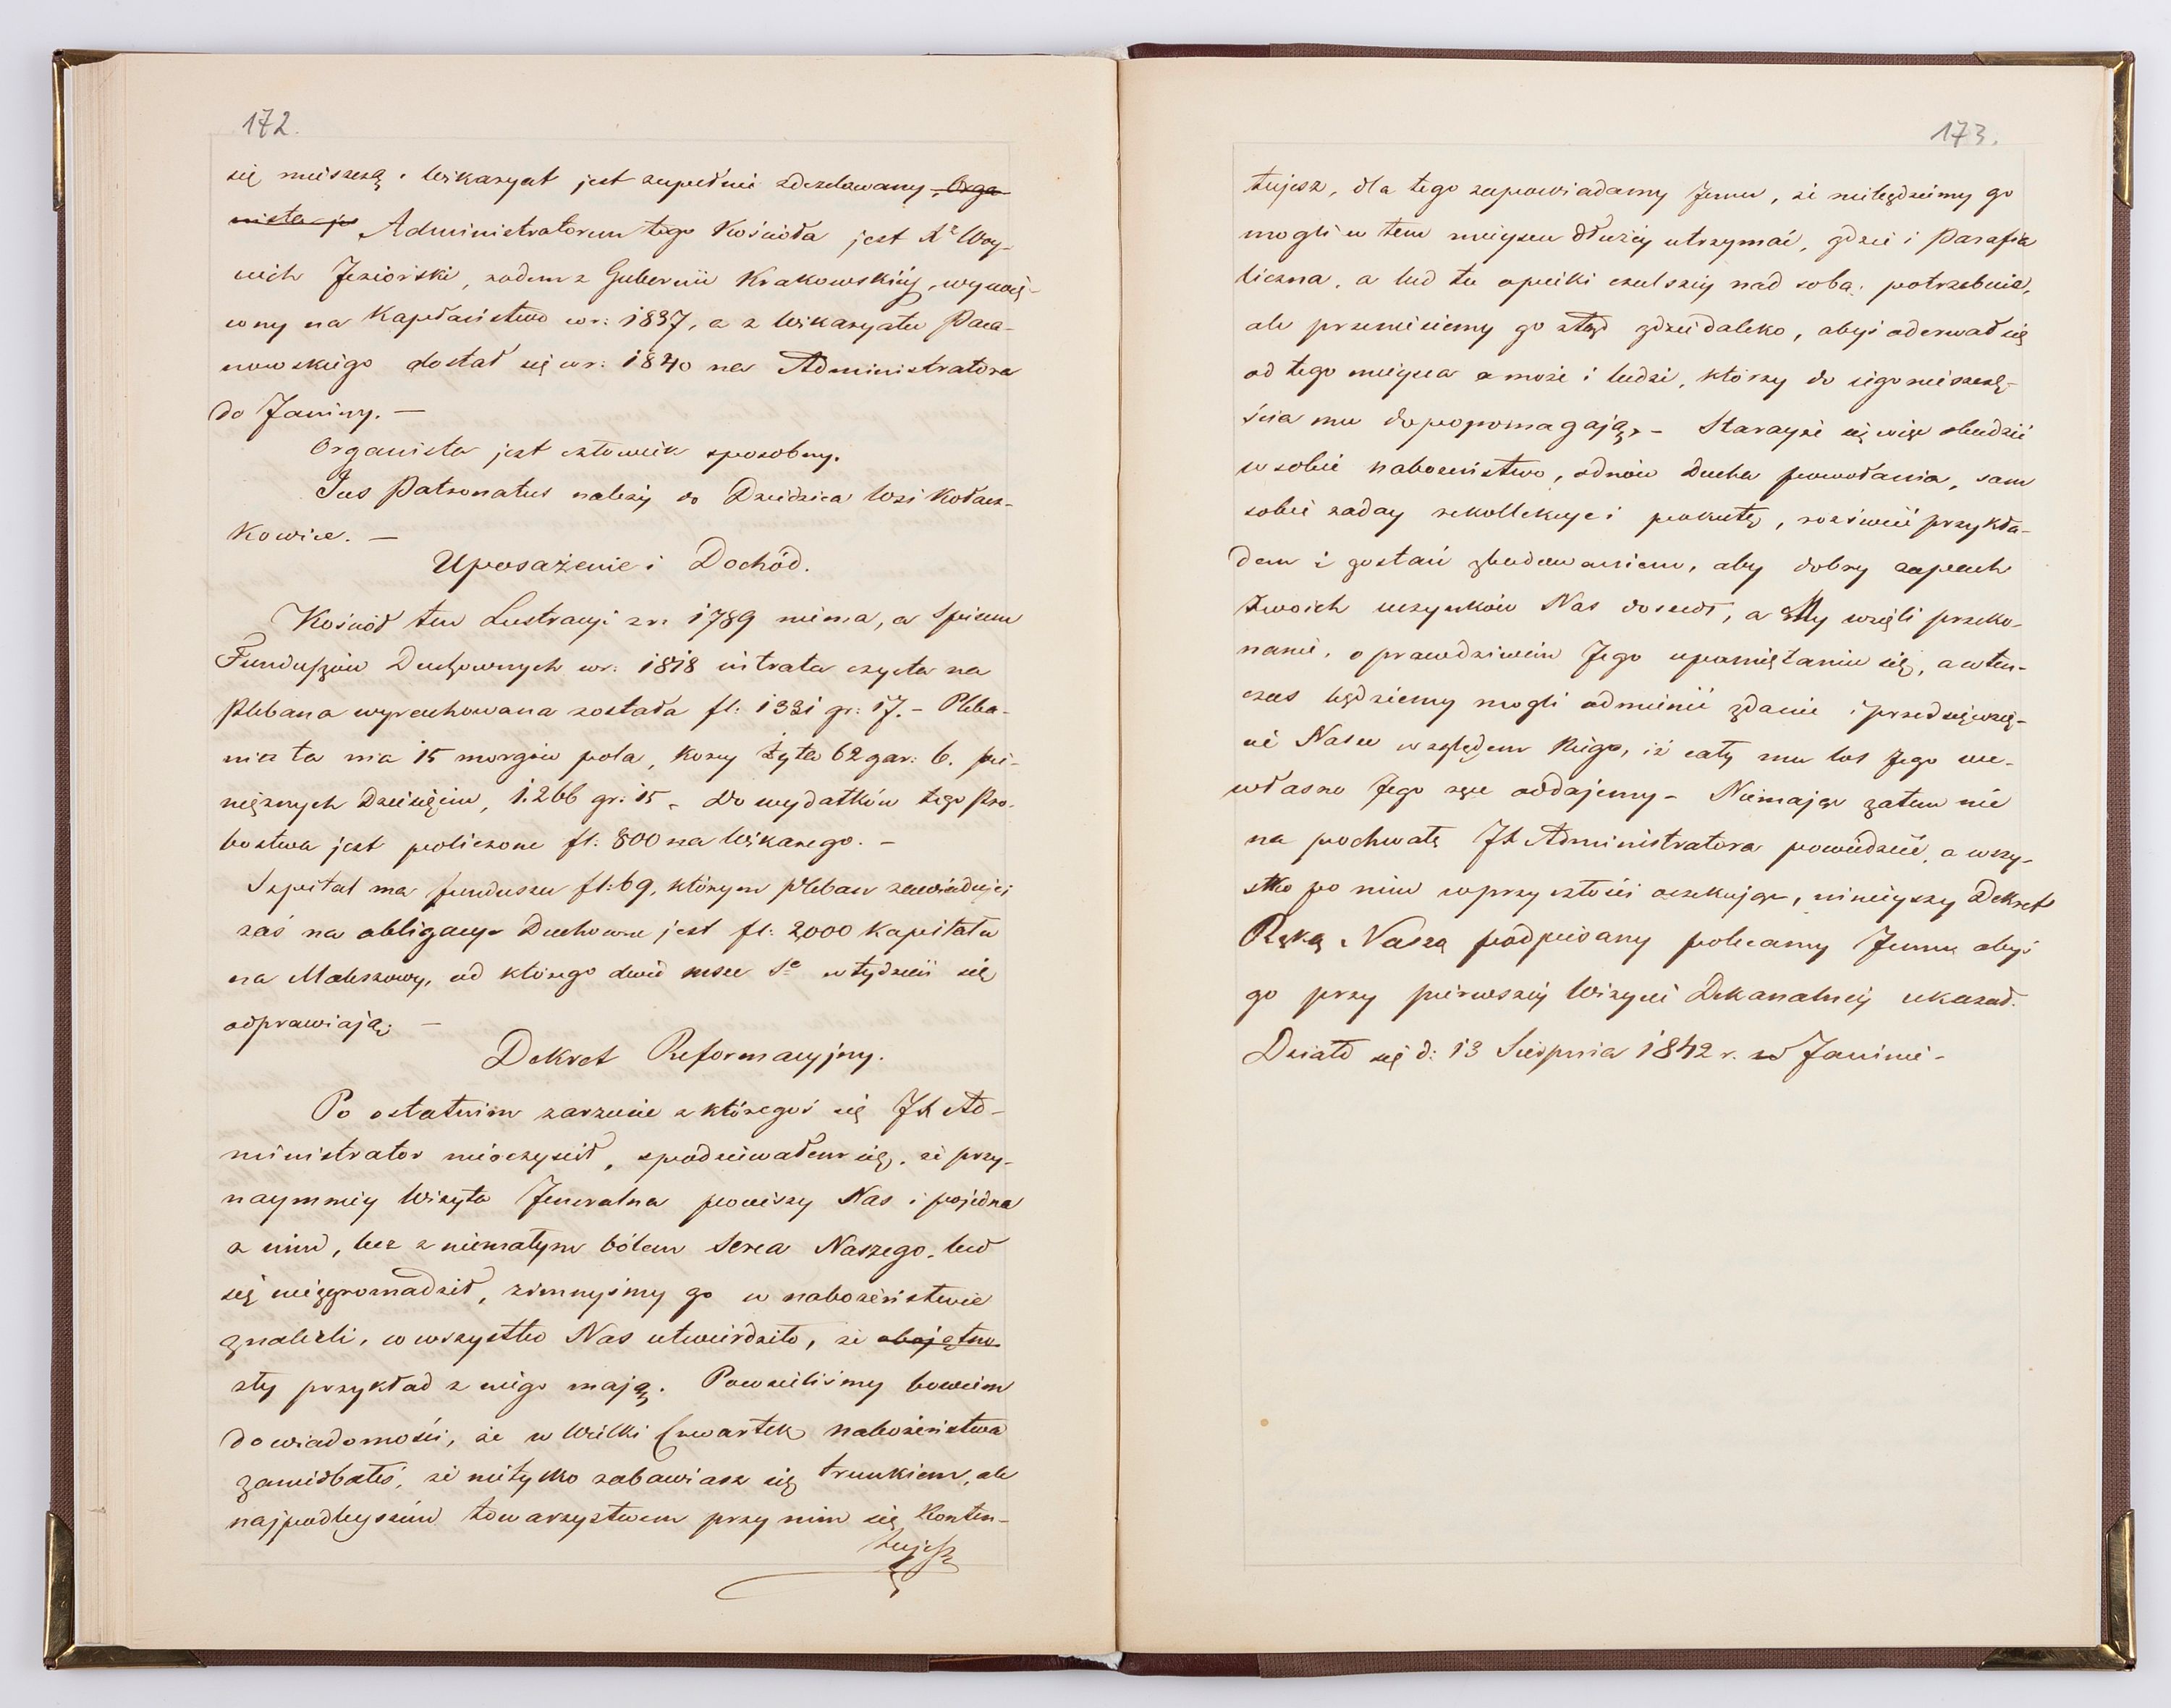 172.
się mieszczą. Wikaryat jest zupełnie zdezelowany, Orga-
nista jes Administratorem tego Kościoła jest X. Woy-
ciech Jeziorski, rodem z Gubernii Krakowskiéy, wyświę-
cony na Kapłaństwo w r: 1837, a z Wikaryatu Paca-
nowskiego dostał się w r: 1840 na Administratora
do Janiny. —
Organista jest człowiek sposobny.
Jus Patronatus należy do Dziedzica Wsi Kołacz-
kowice. —
Uposażenie i Dochód.
Kościół ten Lustracyi z r: 1789 niema, a Spisem
Funduszów Duchownych w r: 1818 intrata czysta na
Plebana wyrachowana została fl: 1331 gr: 17. – Pleba-
nia ta ma 15 morgów pola, korcy żyta 62 gar: 6. pie-
niężnych Dziesięcin, 1.266 gr: 15 – do wydatków tego Pro-
bostwa jest policzone fl: 800 na Wikarego. –
Szpital ma funduszu fl: 69, którym Pleban zawiaduje;
zaś na obligacye Duchowne jest fl: 2000 kapitału
na Maleszowy, od którego dwie msze Ste w tydzień się
odprawiają. —
Dekret Reformacyjny.
Po ostatnim zarzucie z któregoś się JX Ad-
ministrator nieoczyścił, spodziewałem się, że przy-
naymniéy Wizyta Jeneralna pocieszy Nas i pojedna
z nim, lecz z niemałym bólem Serca Naszego, lud
się niezgromadził, zimnyśmy go w nabożeństwie
znaleźli, co wszystko Nas utwierdziło, że obojętno
zły przykład z niego mają. Powzieliśmy bowiem
do wiadomości, że w Wielki Czwartek nabożeństwa
zaniedbałeś, że nietylko zabawiasz się trunkiem, ale
najpodlejszém towarzystwem przy nim się konten-
tujesz
173.
tujesz, dla tego zapowiadamy Jemu, że niebędziemy go
mogli w tem mieyscu dłużéy utrzymać, gdzie i Parafia
liczna, a lud tu opieki czulszéy nad sobą potrzebuie,
ale przeniesiemy go ztąd gdzieś daleko, abyś oderwał się
od tego mieysca a może i ludzi, którzy do jego nieszczę-
ścia mu dopopomagają. – Starayże się więc obudzić
w sobie nabożeństwo, odnów Ducha powołania, sam
sobie zaday rekollekcye i pokutę, rozświeć przykła-
dem i zostań zbudowaniem, aby dobry zapach
Twoich uczynków Nas doszedł, a My wzięli przeko-
nanie, o prawdziwém Jego upamiętaniu się, a wten-
czas będziemy mogli odmienić zdanie i przedsięwzię-
cie Nasze względem Niego, iż cały mu los Jego we-
własne Jego ręce oddajemy – Niemając zatem nic
na pochwałę JX Administratora powiedzieć, a wszy-
stko po nim w przyszłości oczekując, ninieyszy Dekret
Ręką Naszą podpisany polecamy Jemu abyś
go przy pierwszéy Wizycie Dekanalnéy ukazał.
Działo się d: 13 Sierpnia 1842 r. w Janinie –